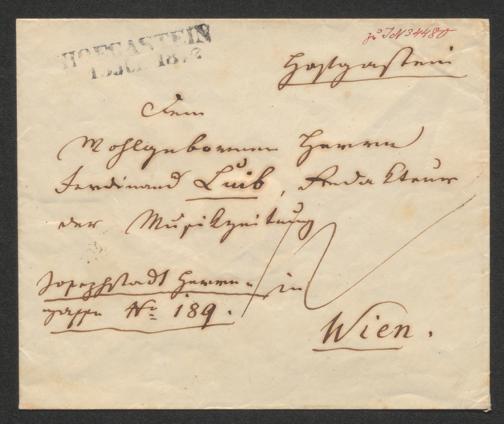 HOFGASTEIN
zu I.N. 34480
Hofgastein
Dem
Wohlgebornen Herrn
Ferdinand Luib, Redakteur
der Musikzeitung
Josephstadt Herrn- in
gasse No 189.
Wien.